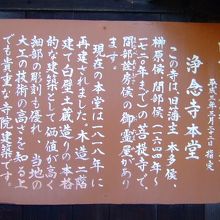 浄念寺本堂
この寺は、旧藩主 本多侯、
榊原侯、間部侯（一六四四年〜
一七二〇年まで）の菩提寺で、
間部詮房侯の御霊屋があり
ます。
現在の本堂は一八一八年に
再建されました。木造二階
建て白壁土蔵造りの本格
的な建築として価値が高く
細部の彫刻も優れ、当地の
大工の技術の高さを知る上
でも貴重な寺院建築です。